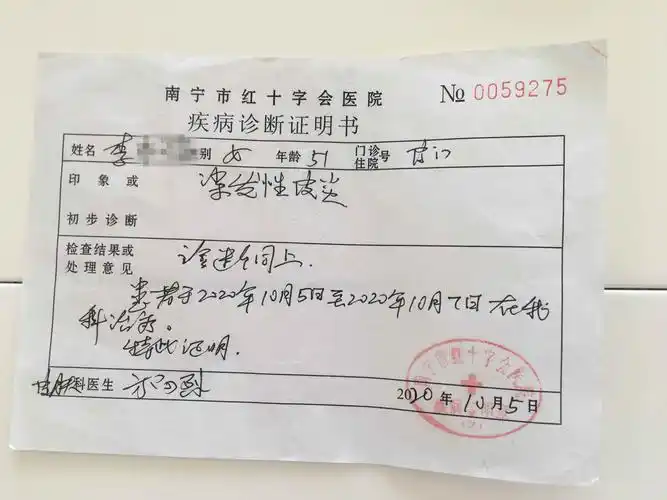 南宁市红十字会医院
№ 0059275
疾病诊断证明书
姓名 李 别 女 年龄 51 门诊 住院 号
印象或 初步诊断 染发性皮炎
检查结果或 处理意见 诊断同上.
患者于2020年10月5日至2020年10月7日在我
科治疗。
特此证明.
皮肤科医生 2020年10月5日